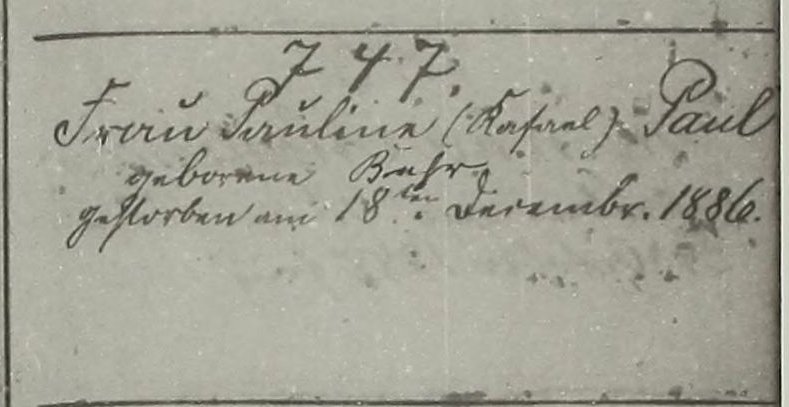 747.
Frau Pauline (Rafael) Paul
geborene Buhr
gestorben am 18ten Decembr. 1886.